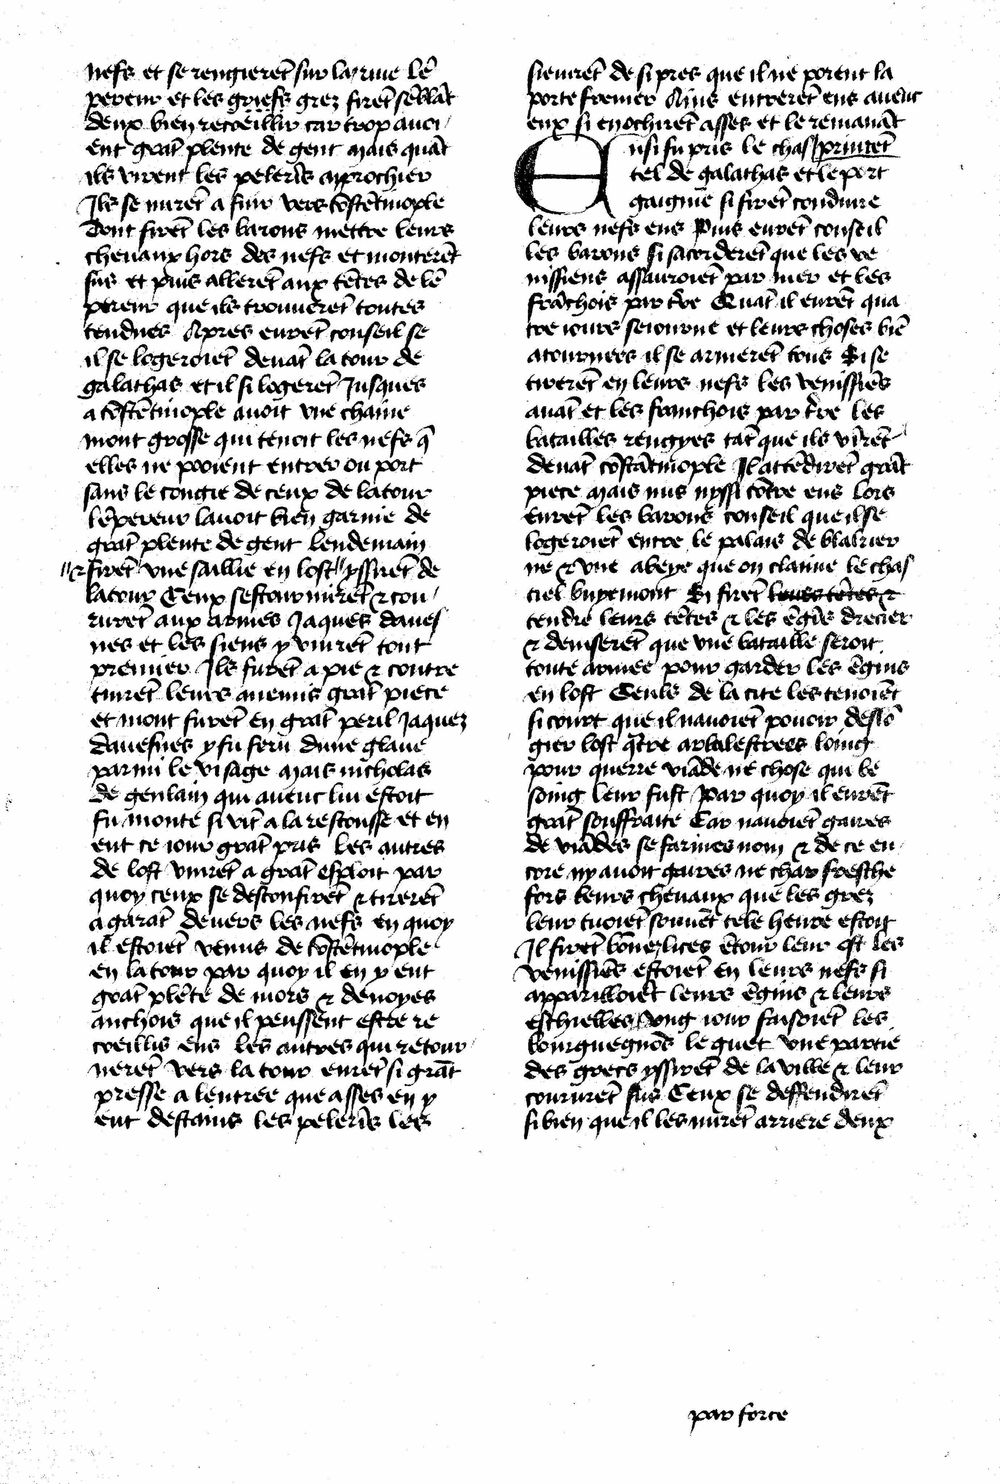 nefs et se rengierēt sur la rive lē
pereur et les griefs grez firēt sēblāt
deux bien recoeillir car trop avoi
ent grāt plente de gent Mais quāt
ils virent les pelerīs aprochier
Ils se mirēt a fuir vers cōstētinople
Dont firēt les barons mettre leurs
chevaux hors des nefs et monterēt
sus et puis allerēt aux tētes de lē
pereur que ils trouverēt toutes
tendues Apres eurēt conseil se
il se logeroiēt devāt la tour de
galathas et il si logerēt Jusques
a cōstētinople avoit une chaine
mout grosse qui tenoit les nefs q̄
elles ne pooient entrer ou port
sans le congie de ceux de la tour
lēpereur lavoit bien garnie de
grāt plente de gent Lendemain
"& firēt une saillie en lost" yssirēt de
la tour Ceux sestourmirēt & cou
rurēt aux armes Jaques daves
nes et les siens y vinrēt tout
premier Ils furēt a pie & contre
tinrēt leurs anemis grāt piece
et mout furēt en grāt peril Jaquez
davesnes y fu feru dune glave
parmi le visage Mais nicholas
de genlain qui aveuc lui estoit
fu monte si vīt a la rescousse et en
eut ce iour grāt pris Les autres
de lost vinrēt a grāt esploit par
quoy ceux se desconfirēt & tirerēt
a garāt devers les nefs en quoy
il estoiēt venus de cōstētinople
en la tour par quoy il en y eut
grāt plēte de mors & de noyes
anchois que il peussent estre re
coeillis ens Les autres qui retour
nerēt vers la tour eurēt si grāt
presse a lentree que asses en y
eut destains les pelerīs les
sieurēt de si pres que il ne porent la
porte fremer Ains entrerēt ens aveuc
eux si en ochirēt asses et le remanāt
Ensi fu pris le chas prinrēt
tel de galathas et le port
gaignie si firēt conduire
leurs nefs ens Puis eurēt conseil
les barons si sacorderēt que les ve
nissiens assauroiēt par mer et les
frāchois par t̄re Quāt il eurēt qua
tre iours seiourne et leurs choses biē
atournees il se armerēt tous Si se
tirerēt en leurs nefs les venissiēs
avāt et les franchois par t̄re les
batailles rengyes tāt que ils vīrēt
devāt cōstātinople Il attēdirēt grāt
piece Mais nus nyssi cōtre eus Lors
eurēt les barons conseil que il se
logeroiēt entre le palais de blakier
ne & une abeye que on claime le chas
tiel buyemont Si firēt leurs tētes &
tendre leurs tētes & les ēgīs drecier
& deviserēt que une bataille seroit
toute armee pour garder les ēgins
en lost Ceuls de la cite les tenoiēt
si court que il navoiēt pouoir deslō
gier lost q̄tre arbalestrees loing
pour querre viāde ne chose qui be
soing leur fust Par quoy il eurēt
grāt souffraite Car navoiēt gaires
de viādes se farines nom & de ce en
core ny avoit gaires ne char fresche
fors leurs chevaux que les grez
leur tuoiēt souvēt tele heure estoit
Il firēt bōnes lices ētour leur ost les
venissiēs estoiēt en leurs nefs si
apparilloiēt leurs ēgins & leurs
eschielles Ung iour faisoiēt les
bourguegnōs le guet une partie
des grecs yssirēt de la ville & leur
coururēt sus Ceux se deffendirēt
si bien que il les mirēt arriere deux
par force